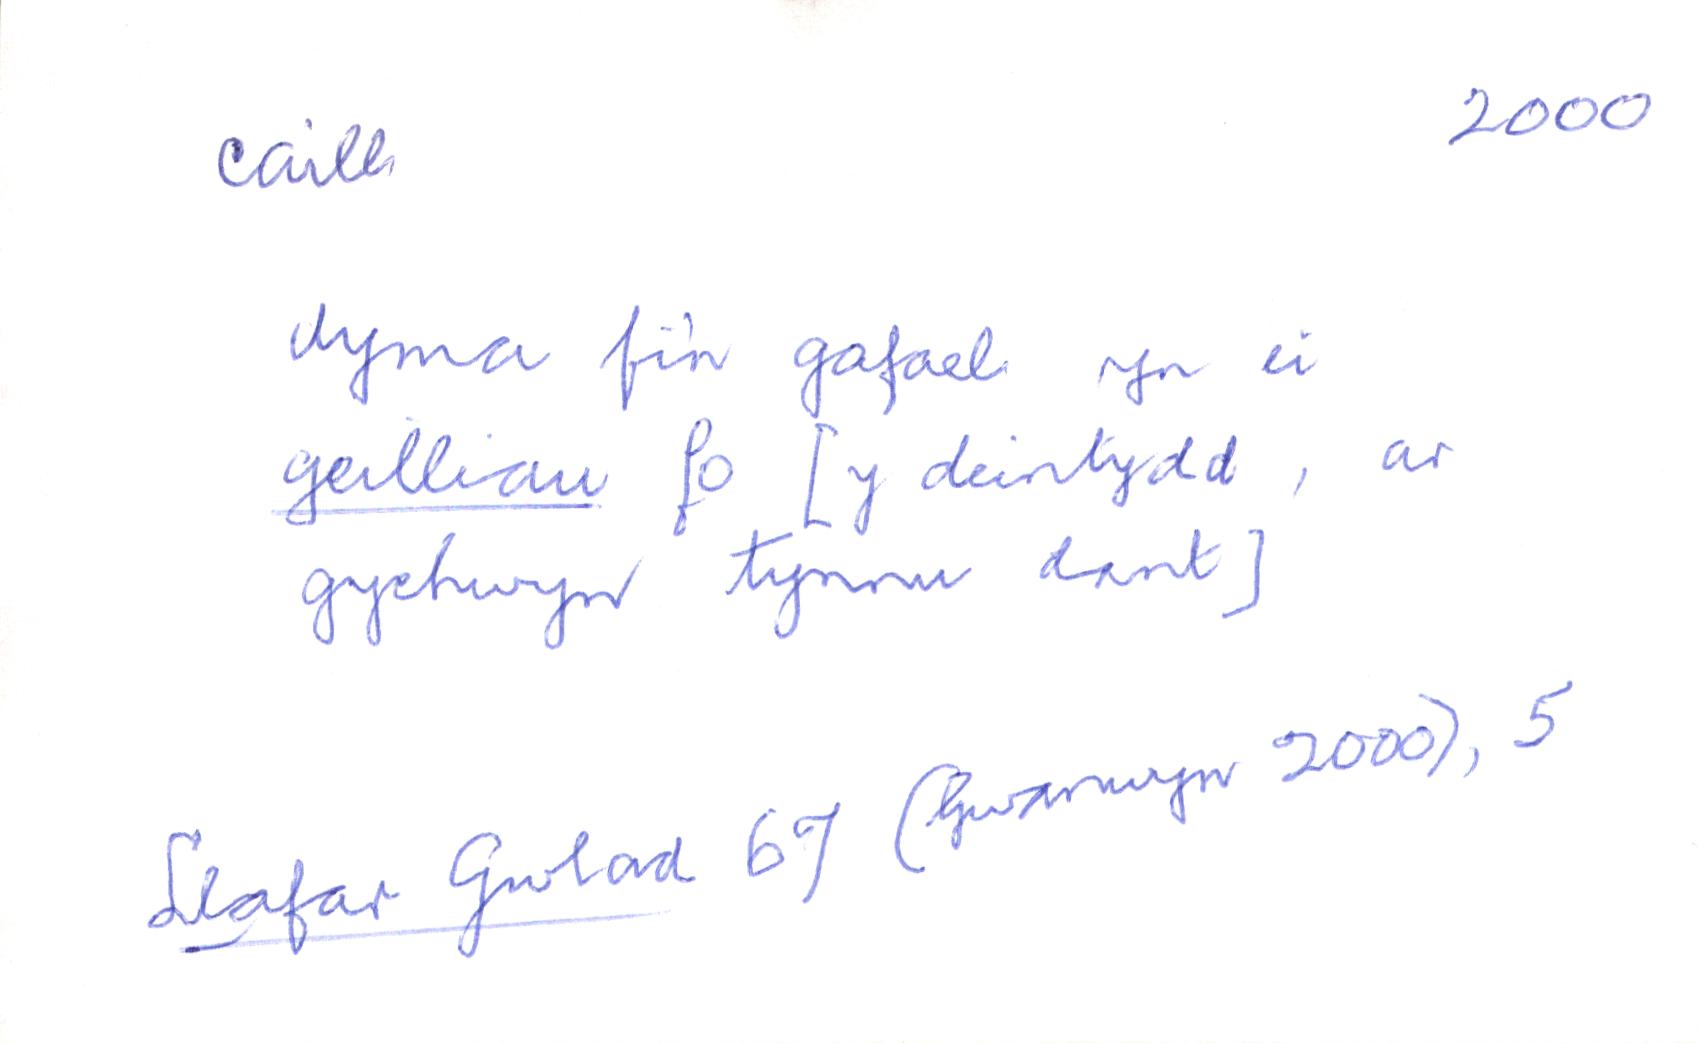 caill 2000
dyma fi'n gafael yn ei
geilliau fo [y deintydd, ar
gychwyn tynnu dant]
Llafar Gwlad 67 (Gwanwyn 2000), 5